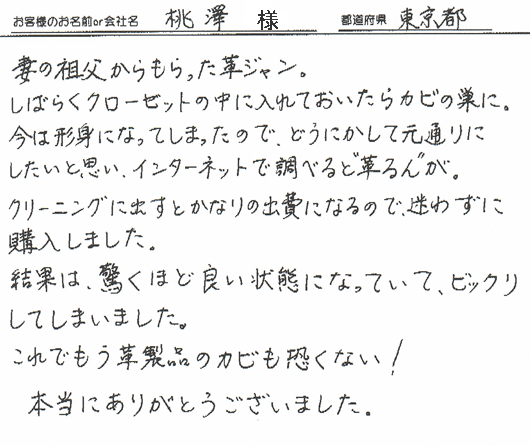 お客様のお名前or会社名 桃澤 様 都道府県 東京都
妻の祖父からもらった革ジャン。
しばらくクローゼットの中に入れておいたらカビの巣に。
今は形身になってしまったので、どうにかして元通りに
したいと思い、インターネットで調べると"革るん"が。
クリーニングに出すとかなりの出費になるので、迷わずに
購入しました。
結果は、驚くほど良い状態になっていて、ビックリ
してしまいました。
これでもう革製品のカビも恐くない!
本当にありがとうございました。